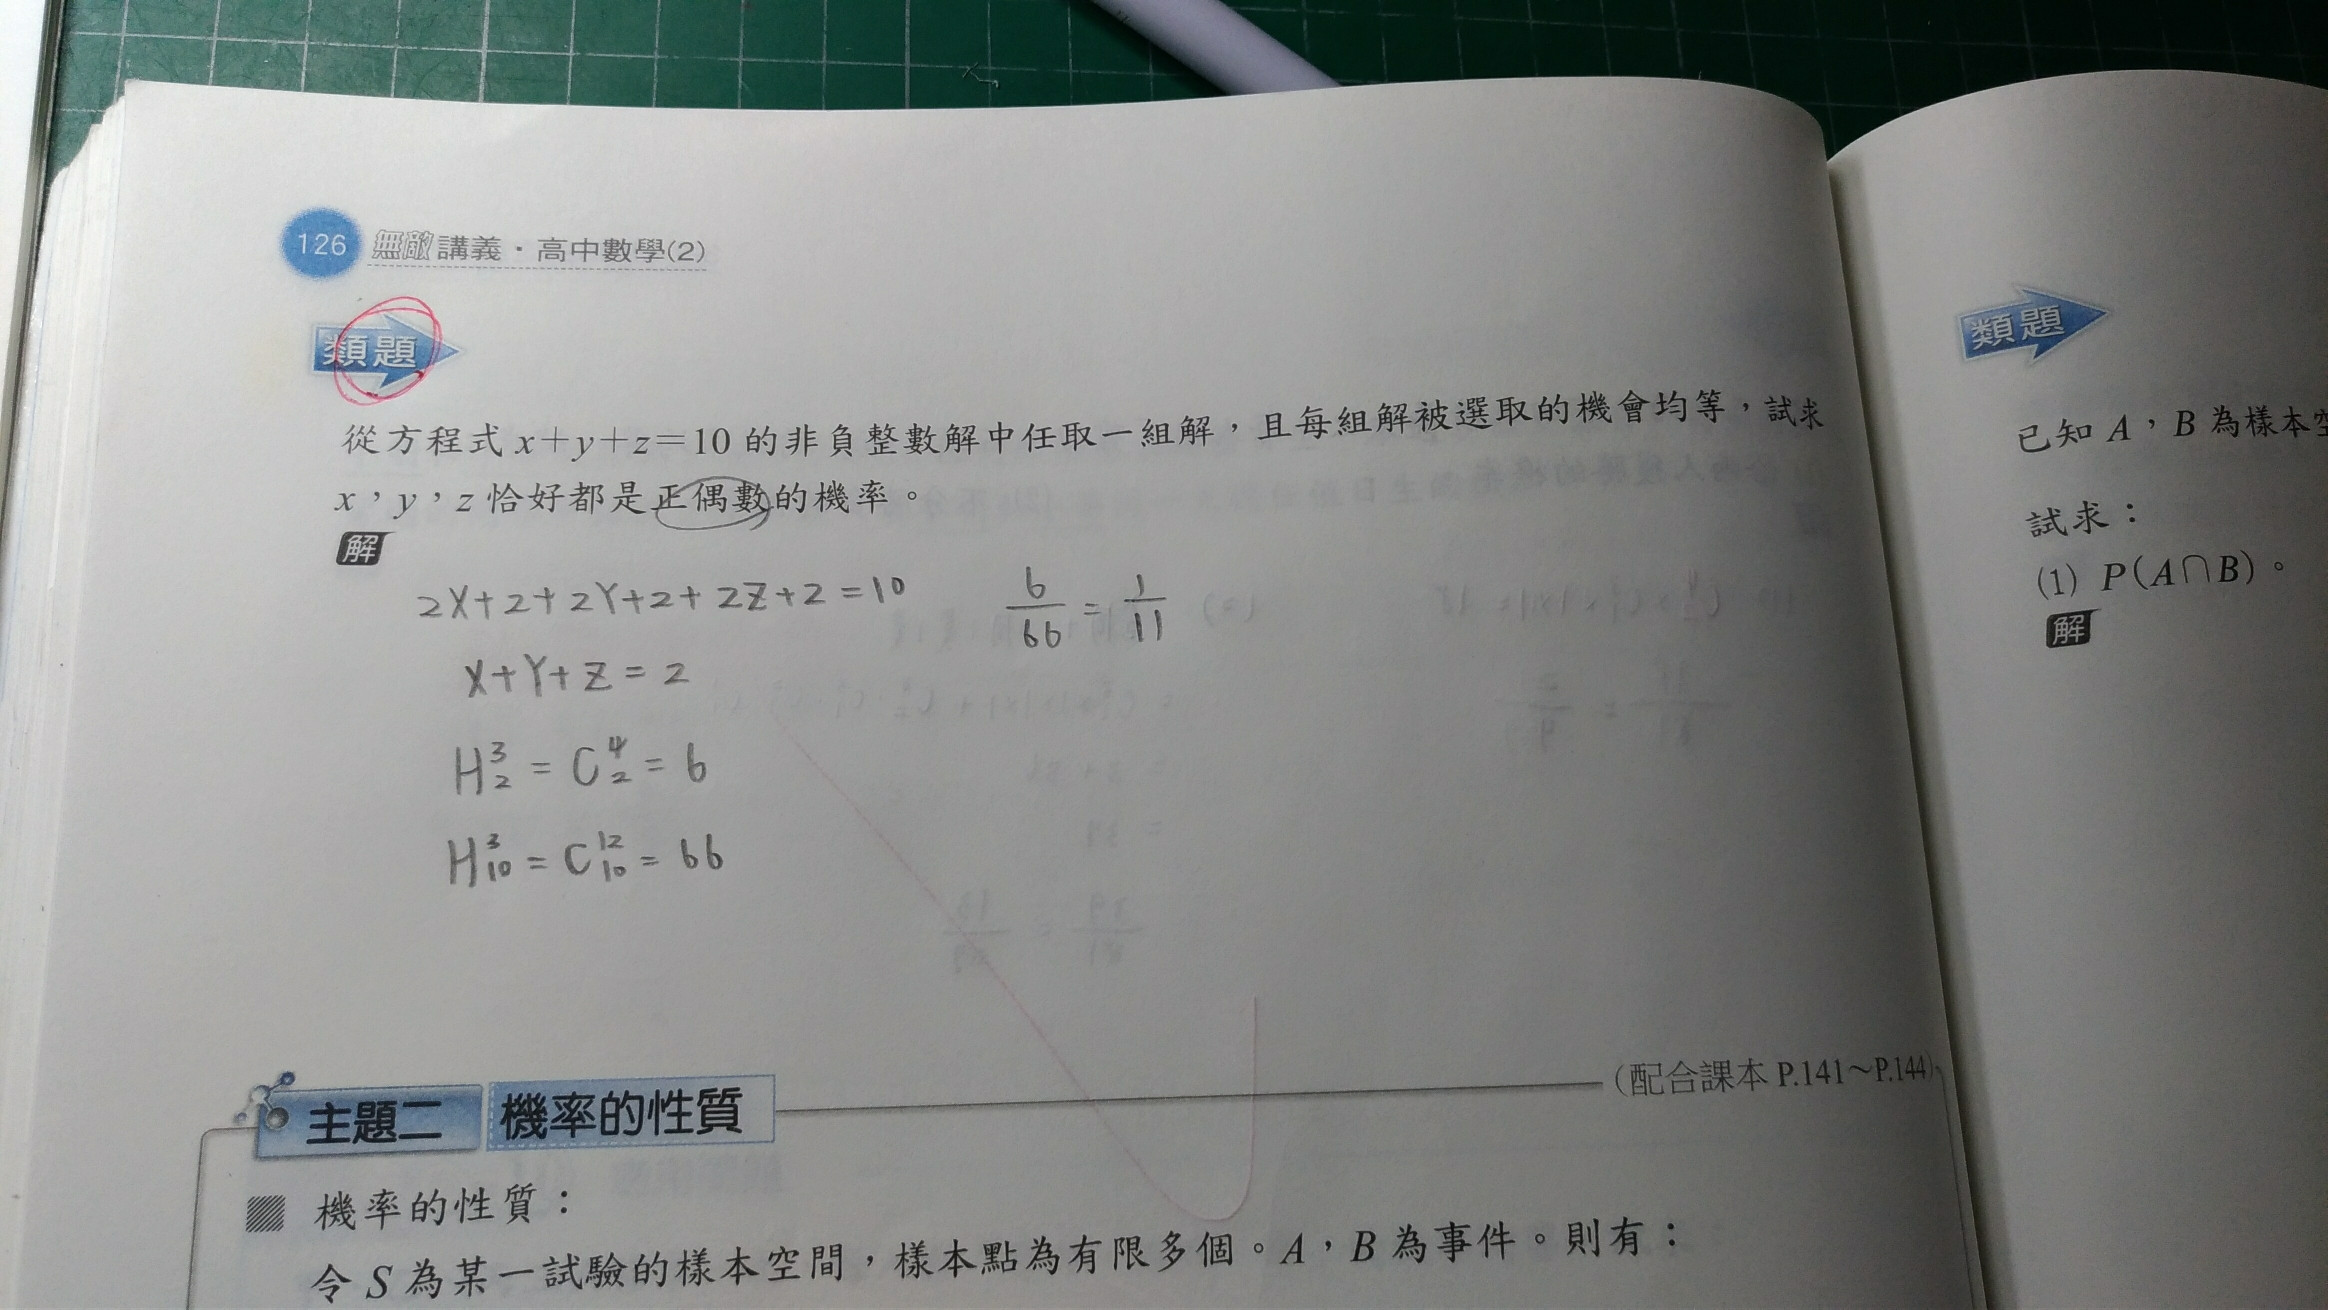 126 無敵講義・高中數學(2)
類題
從方程式 x+y+z=10 的非負整數解中任取一組解，且每組解被選取的機會均等，試求
x，y，z 恰好都是正偶數的機率。
解
2X+2+2Y+2+2Z+2=10
X+Y+Z=2
H³₂ = C⁴₂ = 6
H³₁₀ = C¹²₁₀ = 66
6/66 = 1/11
主題二 機率的性質 (配合課本 P.141～P.144)
機率的性質：
令 S 為某一試驗的樣本空間，樣本點為有限多個。A，B 為事件。則有：
類題
已知 A，B 為樣本空
試求：
(1) P(A∩B)。
解